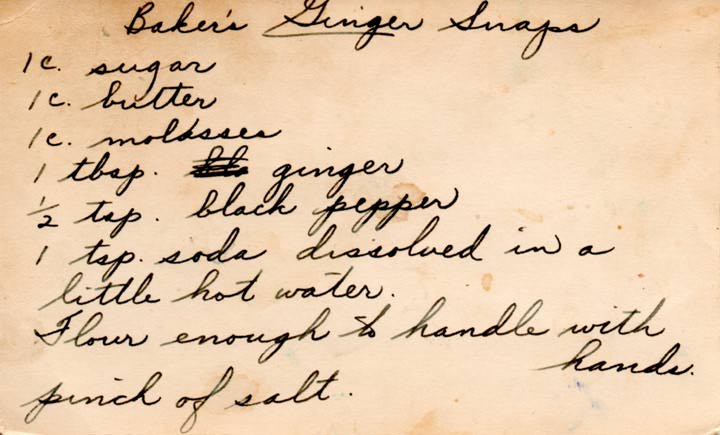 Baker's Ginger Snaps
1 c. sugar
1 c. butter
1 c. molasses
1 tbsp. ginger
½ tsp. black pepper
1 tsp. soda dissolved in a
little hot water.
Flour enough to handle with
hands.
pinch of salt.